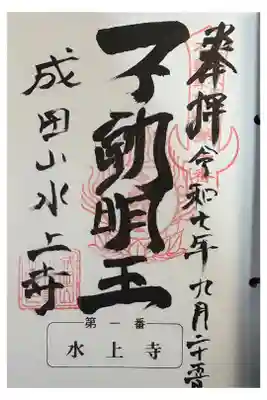 奉拝 令和七年九月二十五日
不動明王
成田山水上寺
第一番
水上寺